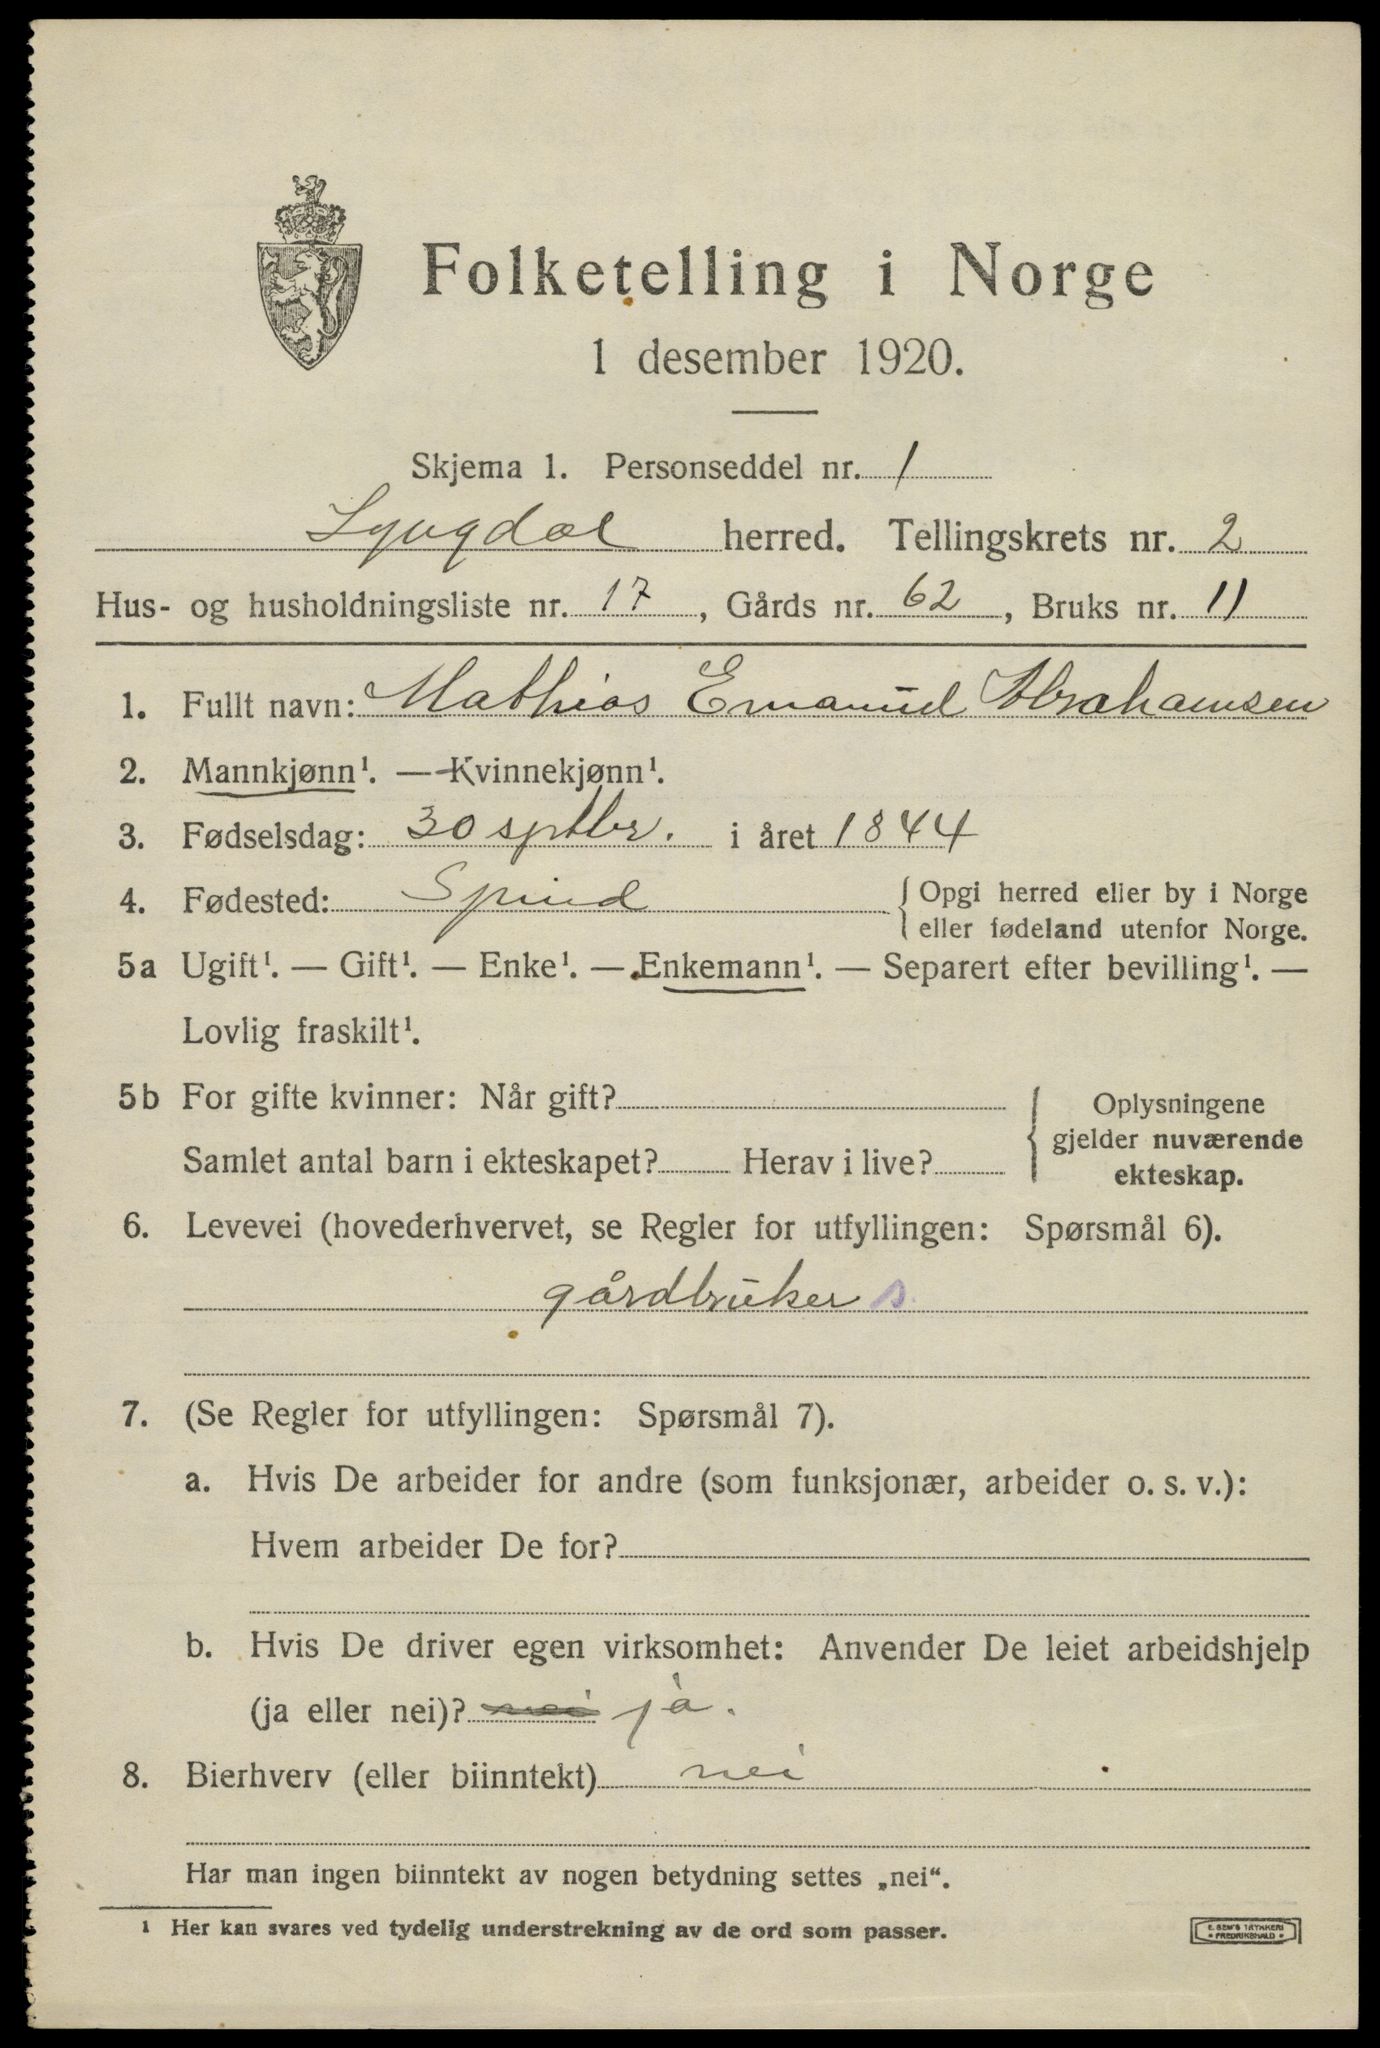 Folketelling i Norge
1 desember 1920.
Skjema 1. Personseddel nr. 1
Lyngdal herred. Tellingskrets nr. 2
Hus- og husholdningsliste nr. 17, Gårds nr. 62, Bruks nr. 11
1. Fullt navn: Mathias Emanuel Abrahamsen
2. Mannkjønn¹. — Kvinnekjønn¹.
3. Fødselsdag: 30 sptbr. i året 1844
4. Fødested: Spind { Opgi herred eller by i Norge
eller fødeland utenfor Norge.
5a Ugift¹. — Gift¹. — Enke¹. — Enkemann¹. — Separert efter bevilling¹. —
Lovlig fraskilt¹.
5b For gifte kvinner: Når gift?
Samlet antal barn i ekteskapet? Herav i live?
Oplysningene
gjelder nuværende
ekteskap.
6. Levevei (hovederhvervet, se Regler for utfyllingen: Spørsmål 6).
gårdbruker s.
7. (Se Regler for utfyllingen: Spørsmål 7).
a. Hvis De arbeider for andre (som funksjonær, arbeider o. s. v.):
Hvem arbeider De for?
b. Hvis De driver egen virksomhet: Anvender De leiet arbeidshjelp
(ja eller nei)? nei ja.
8. Bierhverv (eller biinntekt) nei
Har man ingen biinntekt av nogen betydning settes „nei“.
¹ Her kan svares ved tydelig understrekning av de ord som passer.
E. SEM'S TRYKKERI
FREDRIKSHALD